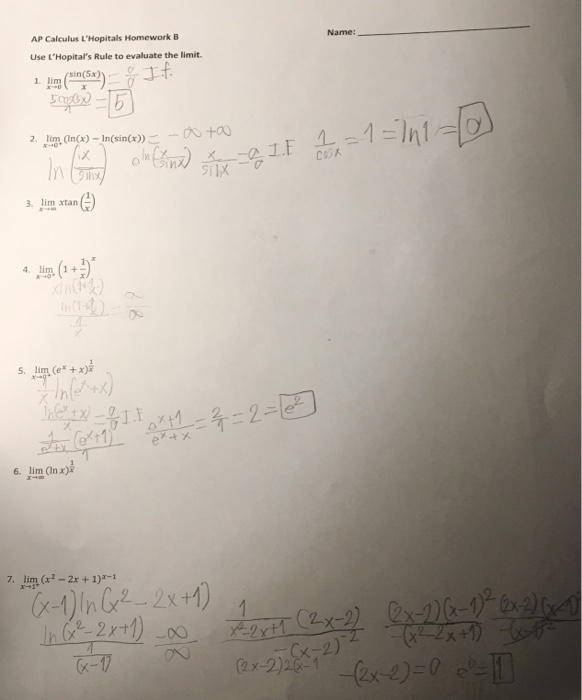 AP Calculus L'Hopitals Homework B
Name:
Use L'Hopital's Rule to evaluate the limit.
1. lim x→0 (sin(5x)/x) = 0/0 I.f.
5cos(5x)/1 = 5
2. lim x→0⁺ (ln(x) − ln(sin(x))) = -∞ +∞
ln (x/sinx) ln(x/sinx) x/sinx = 0/0 I.F 1/cosx = 1 = ln1 = 0
3. lim x→∞ xtan(1/x)
4. lim x→0⁺ (1 + 1/x)^x
xln(1+1/x)
ln(1+1/x)/(1/x) = ∞/∞
5. lim x→0⁺ (e^x + x)^(1/x)
1/x ln(e^x+x)
ln(e^x+x)/x = 0/0 I.F
1/(e^x+x) (e^x+1)/1 (e^x+1)/(e^x+x) = 2/1 = 2 = e²
6. lim x→∞ (ln x)^(1/x)
7. lim x→1⁺ (x² − 2x + 1)^(x−1)
(x-1)ln(x²-2x+1)
ln(x²-2x+1)/(1/(x-1)) -∞/∞ 1/(x²-2x+1) (2x-2)/-(x-2)^-2 (2x-2)(x-1)²/-(x²-2x+1)
-(2x-2)=0 e⁰=1